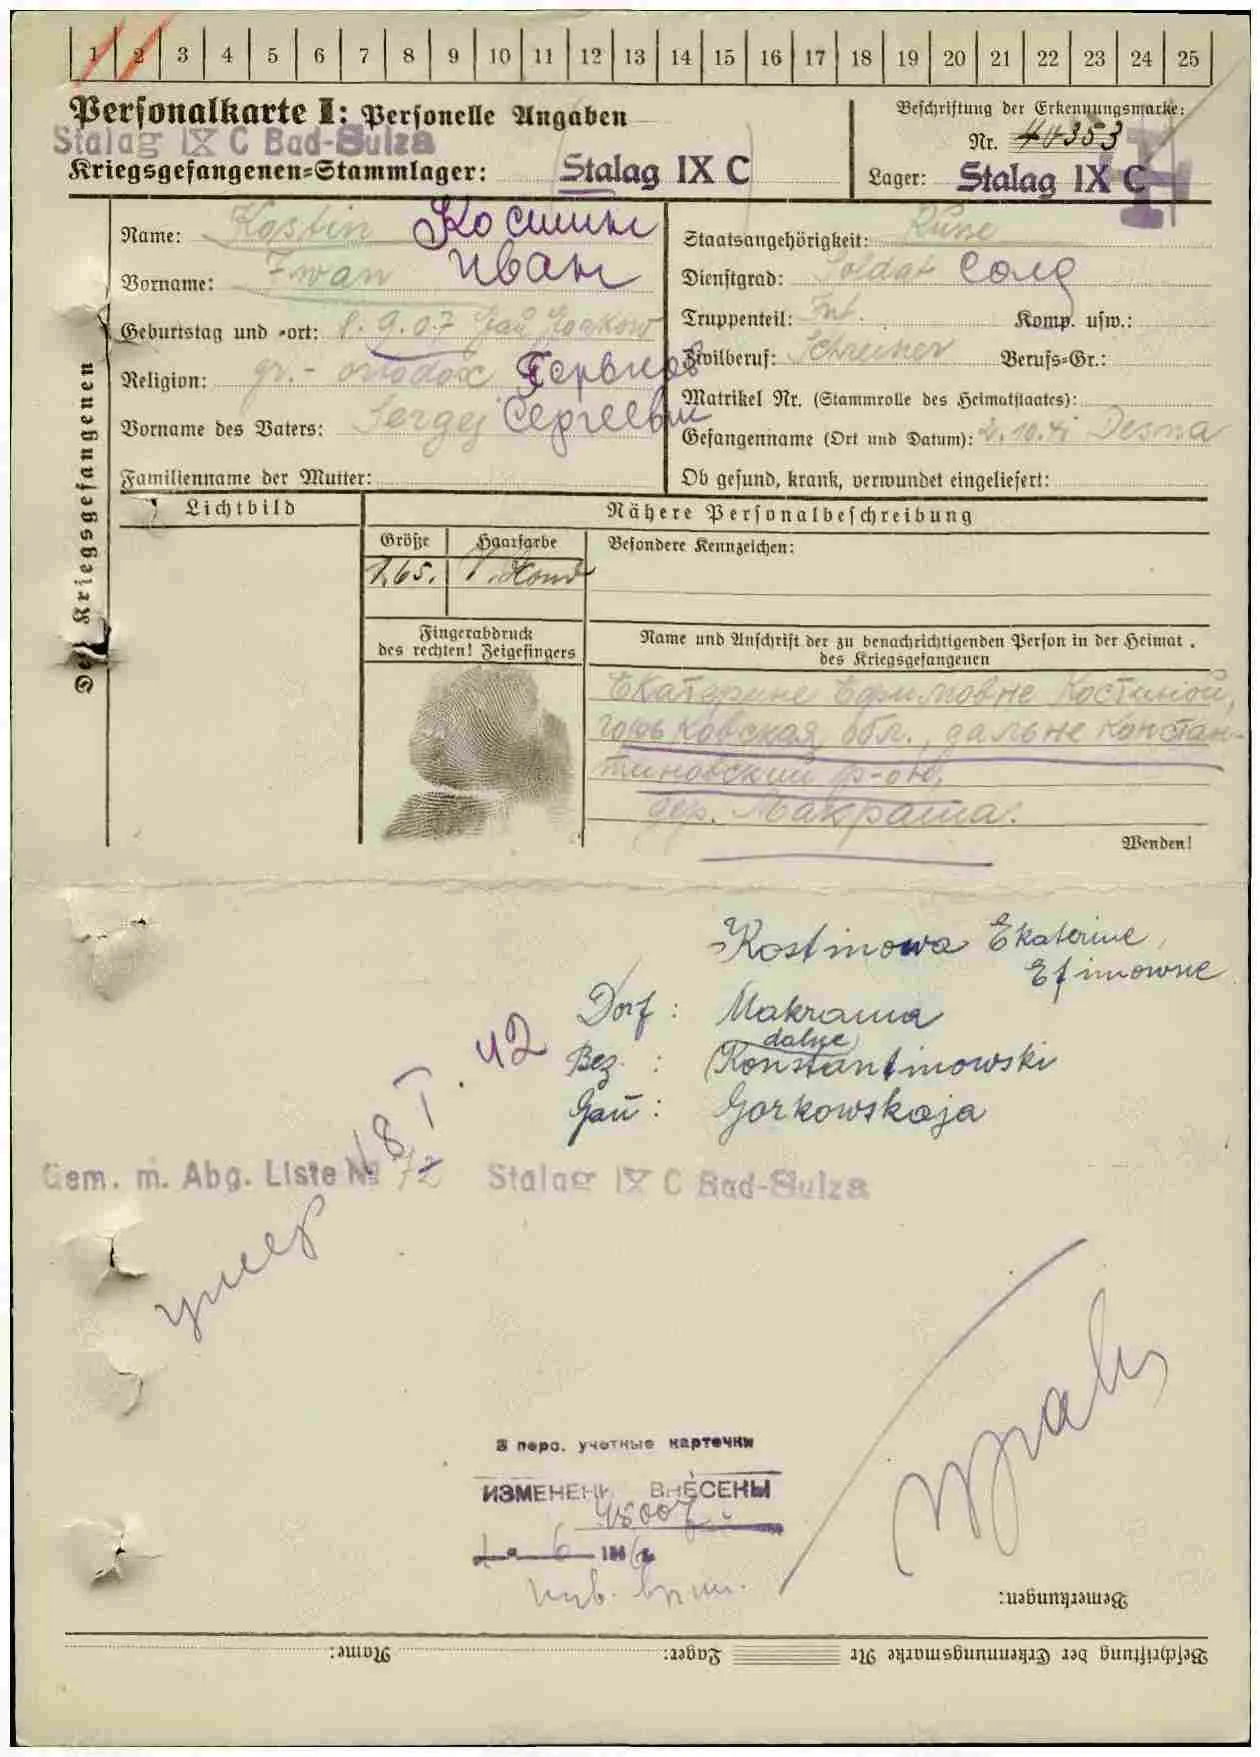 1 2 3 4 5 6 7 8 9 10 11 12 13 14 15 16 17 18 19 20 21 22 23 24 25
Personalkarte I: Personelle Angaben
Stalag IX C Bad-Sulza
Kriegsgefangenen-Stammlager: Stalag IX C
Beschriftung der Erkennungsmarke:
Nr. 40353
Lager: Stalag IX C
Des Kriegsgefangenen
Name: Kostin Костин
Vorname: Iwan Иван
Geburtstag und -ort: 8.9.07 Gau Gorkow
Religion: gr.- ortodox
Vorname des Vaters: Sergej Сергеевич
Familienname der Mutter:
Staatsangehörigkeit: Russe
Dienstgrad: Soldat Солд
Truppenteil: Inf. Komp. usw.:
Zivilberuf: Schreiner Berufs-Gr.:
Matrikel Nr. (Stammrolle des Heimatstaates):
Gefangennahme (Ort und Datum): 2.10.41 Desna
Ob gesund, krank, verwundet eingeliefert:
Lichtbild
Nähere Personalbeschreibung
Größe Haarfarbe Besondere Kennzeichen:
1,65.
Fingerabdruck
des rechten! Zeigefingers
Name und Anschrift der zu benachrichtigenden Person in der Heimat
des Kriegsgefangenen
Екатерине Ефимовне Костиной,
Горьковская обл., дальне Констан-
тиновский р-он,
дер. Макраша.
Wenden!
Kostinowa Ekaterine,
Efimowne
Dorf: Makrama
dalne
Bez.: Konstantinowski
Gau: Gorkowskaja
умер 18 I. 42
Gem. m. Abg. Liste № 72 Stalag IX C Bad-Sulza
В перс. учетные карточки
ИЗМЕНЕНИ ВНЕСЕНЫ
Bemerkungen:
Beschriftung der Erkennungsmarke Nr Lager: Name: